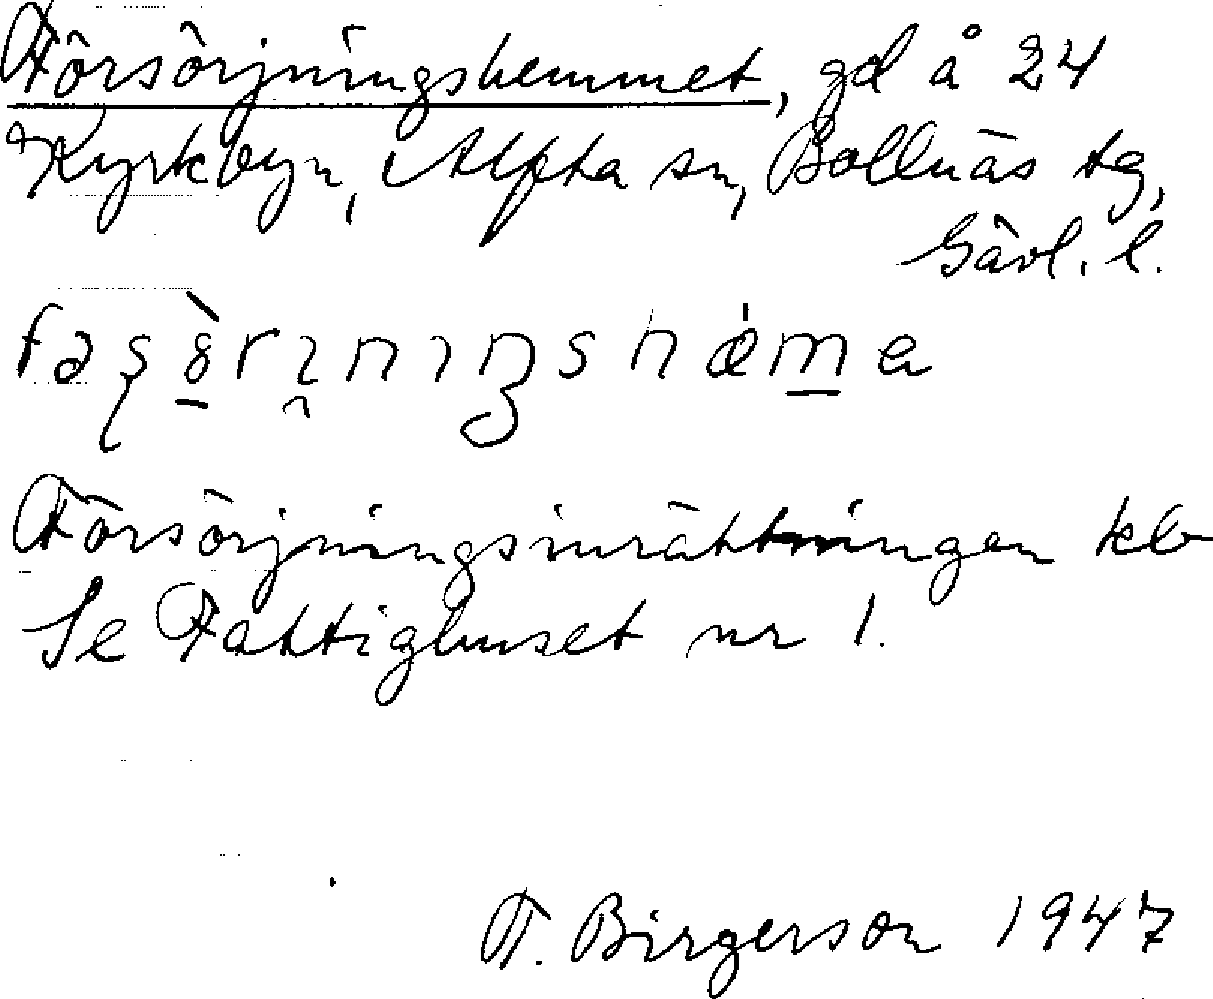 Försörjningshemmet, gd å 24
Kyrkbyn, Alfta sn, Bollnäs tg,
Gävl. l.
Försörjningsinrättningen kb
Se Fattighuset nr 1.
F. Birgerson 1947